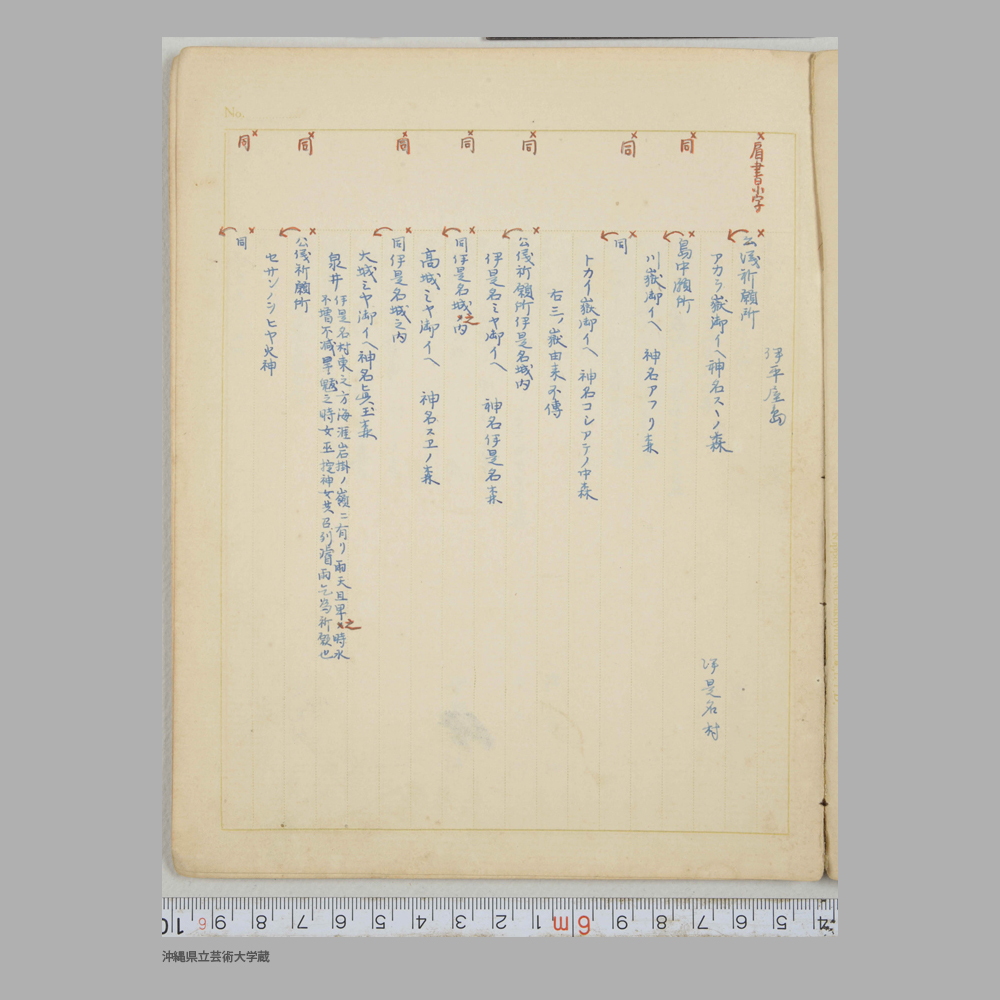 No.
肩書小字
同
同
同
同
同
同
同
伊平屋島
公儀祈願所
アカラ嶽御イヘ神名スヽノ森
伊是名村
島中願所
川嶽御イヘ 神名アフリ森
同
トカイ嶽御イヘ 神名コシアテノ中森
右三ノ嶽由来不傳
公儀祈願所伊是名城内
伊是名ミヤ御イヘ 神名伊是名森
同伊是名城之内
高城ミヤ御イヘ 神名スヱノ森
同伊是名城之内
大城ミヤ御イヘ神名真玉森
泉井 伊是名村東之方海涯岩掛ノ嶺ニ有リ雨天且旱之時水
不増不減旱魃之時女巫掟神女共召列 雨乞為祈願也
公儀祈願所
セサンノシヒヤ火神
同
10 6 9 8 7 6 5 4 3 2 1 6m 9 8 7 6 5 4
沖縄県立芸術大学蔵